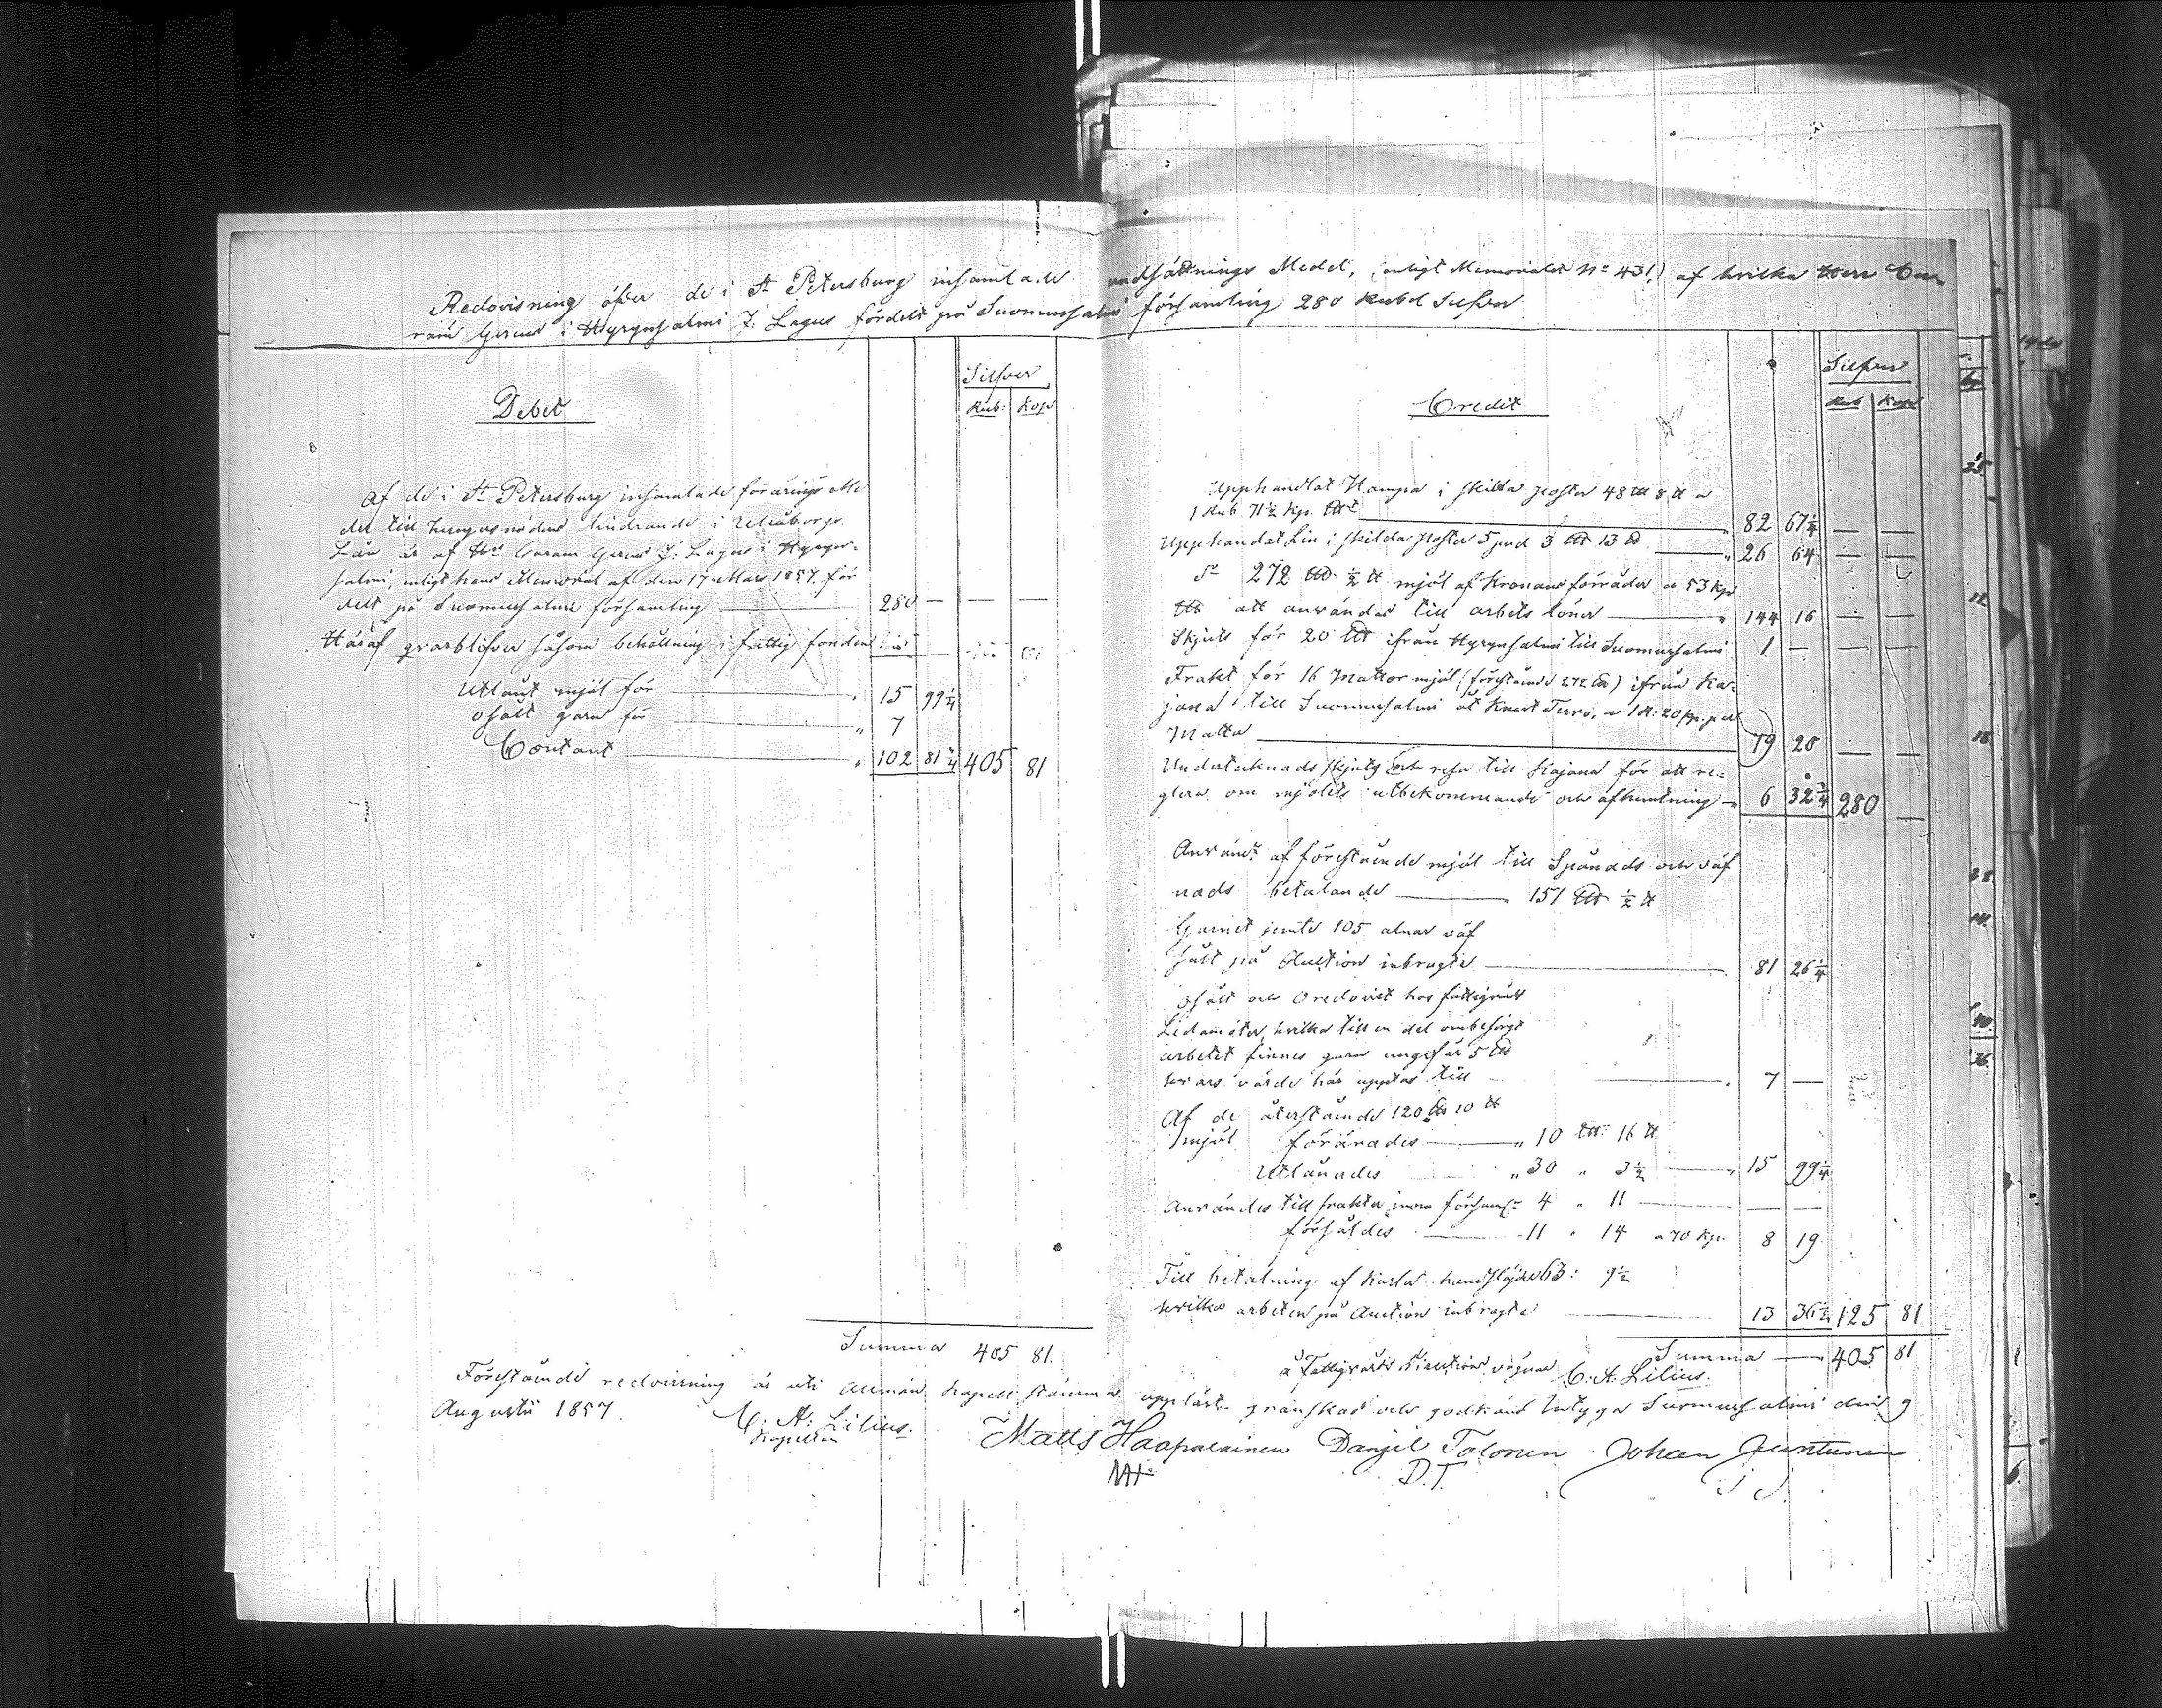 Redovisning öfver de i St Petersburg insamlade undsättnings Medel, (enligt Memorialet No 431) af hvilka Herr Cu
ram Gerens i Hyrynsalmi J. Lagus fördelt på Suomussalmi församling 280 Rubel Silfver
Debet
Silfver
Rub: Kop
Af de i St Petersburg insamlade förärings Me
del till hungersnödens lindrande i Uleåborgs
Län är af Hr Curam Gerens J. Lagus i Hyryn-
salmi, enligt hans Memorial af den 17 Mars 1857, för
delt på Suomussalmi församling 280 — — —
Häraf qvarblifver såsom behållning i fattig fonden
Utlånt mjöl för " 15 99 1/4
osålt garn för " 7
Contant " 102 81 3/4 405 81
Summa 405 81.
Credit
Silfver
Rub Kop
Upphandlat Hampa i skilda poster 48 LU 8 U a
1 Rub 71 1/2 Kp. LU " 82 67 1/4 — —
Upphandlat Lin i skilda poster 5 pud 3 LU 13 U " 26 64 — —
Do 272 LU 1/2 U mjöl af Kronans förråder a 53 Kp
LU att användas till arbets löner " 144 16 — —
Skjuts för 20 LU ifrån Hyrynsalmi till Suomussalmi 1 — — —
Frakt för 16 Mattor mjöl (förestående 272 LU) ifrån Ka-
jana till Suomussalmi åt Knut Tervo, a 1 R: 20 kp. pr
Matta 19 20 — —
Undertecknads skjuts och resa till Kajana för att re-
glera om mjölets utbekommande och afhemtning " 6 32 3/4 280 —
Användt af förestående mjöl till Spånads och väf
nads betalande 151 LU 1/2 U
Garnet jemte 105 alnar väf
sålt på Auction inbragte 81 26 1/4
osålt och Oredovist hos fattigvårds
Ledamöter, hvilka till en del ombesörgt
arbetet finnes garn ungefär 5 LU
hvars värde här upptas till 7 —
Af de återstående 120 LU 10 U
mjöl förärades " 10 LU 16 U
Utlånades " 30 " 3 1/2 " 15 99 1/4
Användes till frakter inom församl: 4 " 11 — —
försåldes 11 " 14 a 70 Kp. 8 19
Till betalning af Karlar handslöjder 63: 9 1/2
hvilka arbeten på Auction inbragte 13 36 1/2 125 81
Summa 405 81
å Fattigvårds Direktions vägnar C: A: Lilius.
Förestående redovisning är uti allmän kapell stämma uppläst granskad och godkänd intyga Suomussalmi den 9
Augusti 1857.
C: A: Lilius.
Kapellan
Matts Haapalainen Daniel Talonen Johan Juntunen
MH D.T. J J.